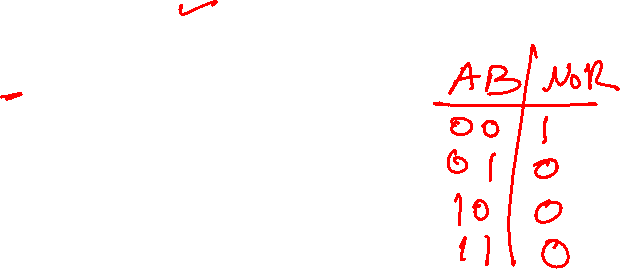 AB NOR
00 1
01 0
10 0
11 0